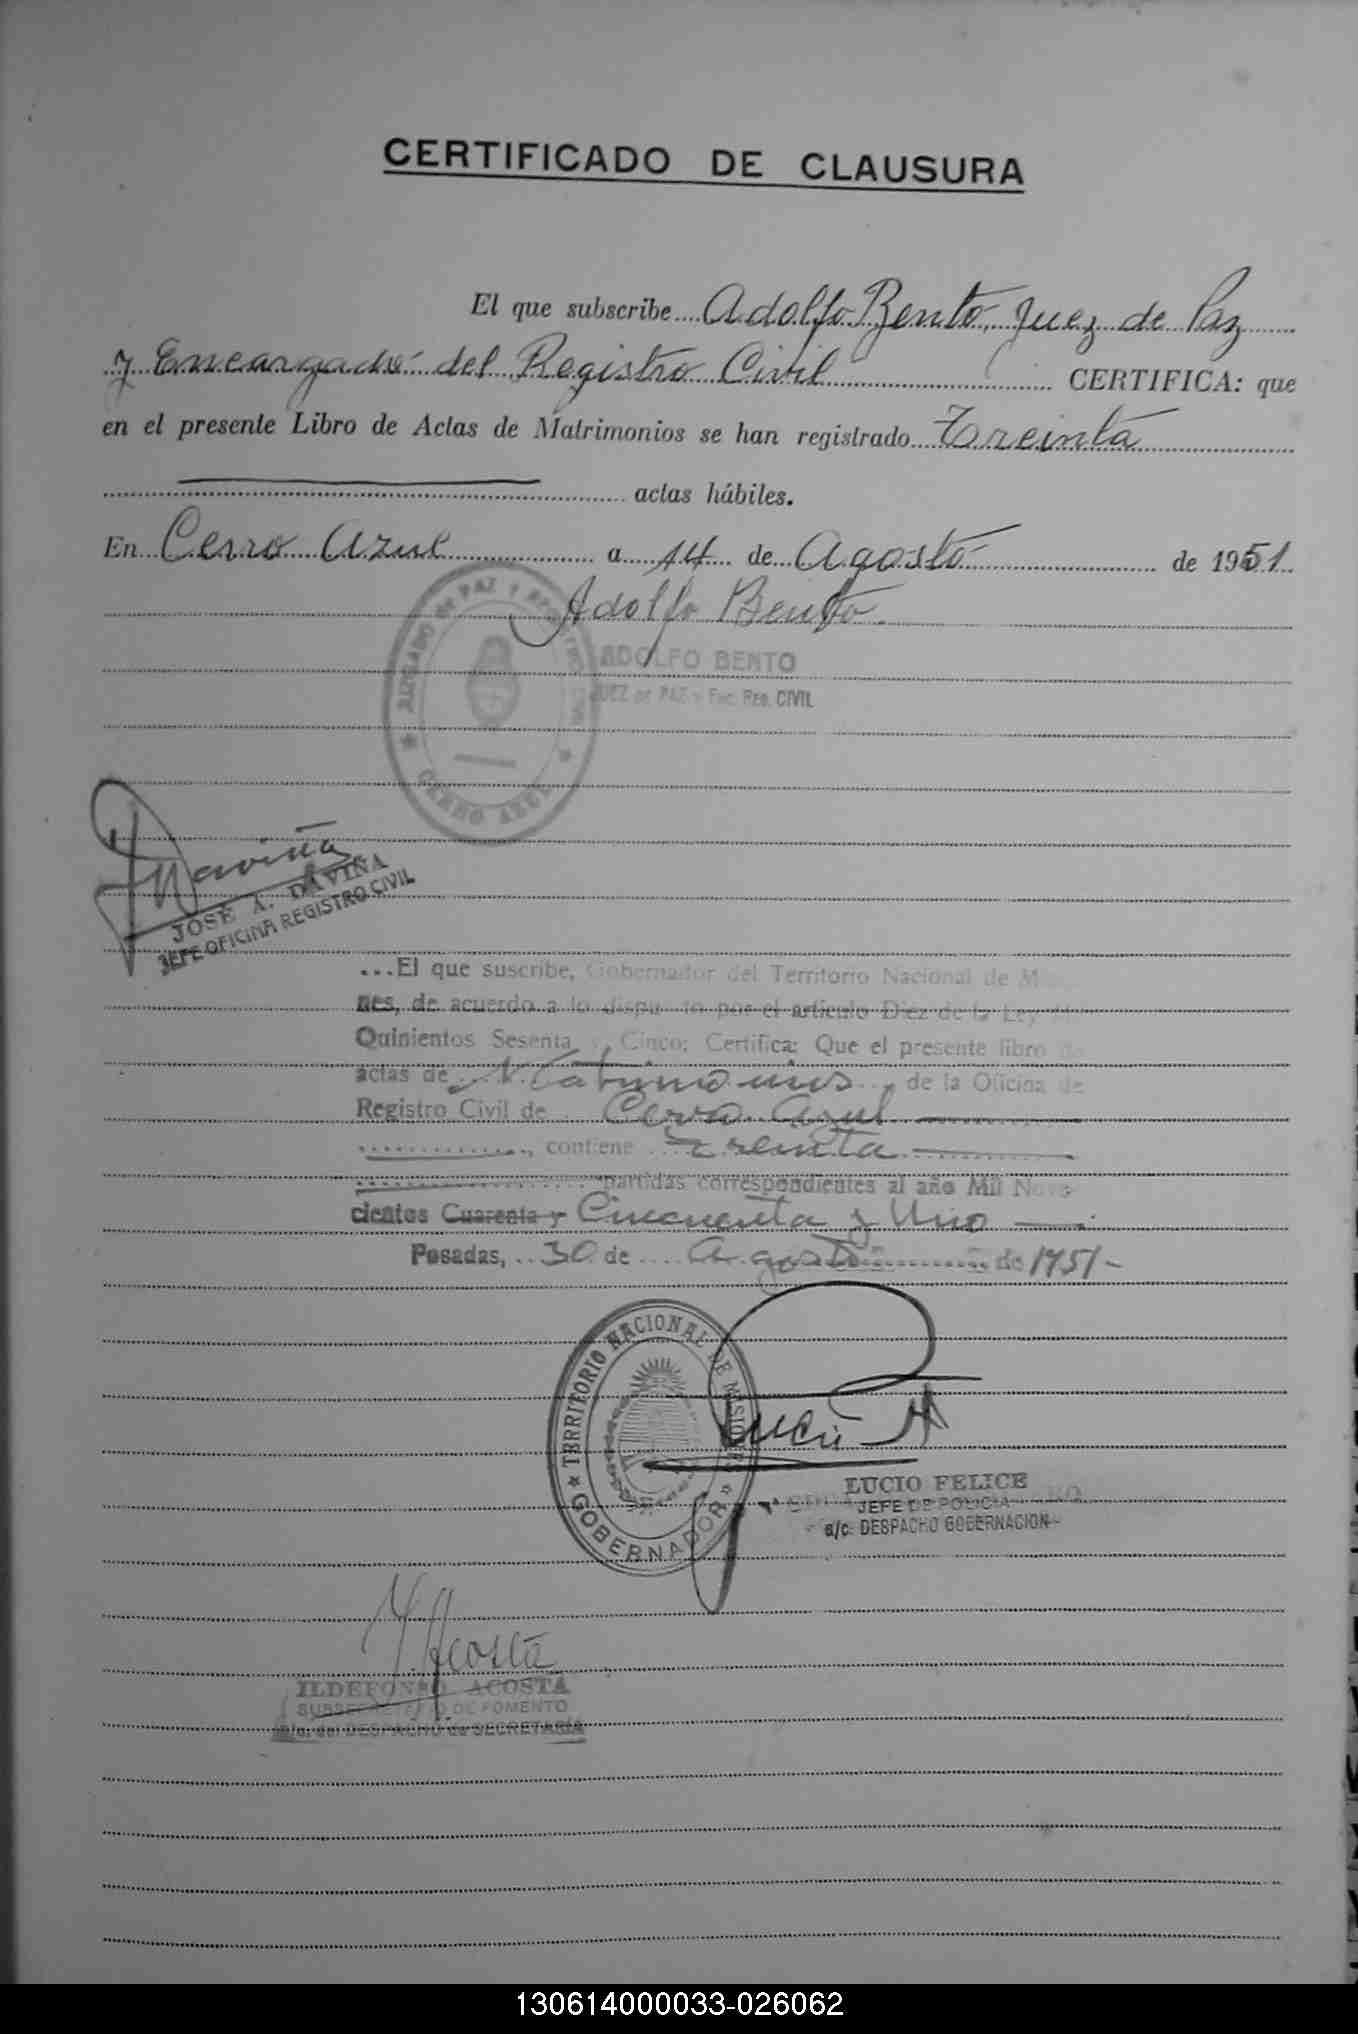 CERTIFICADO DE CLAUSURA
El que subscribe Adolfo Bento, Juez de Paz
y Encargado del Registro Civil CERTIFICA: que
en el presente Libro de Actas de Matrimonios se han registrado Treinta
actas hábiles.
En Cerro Azul a 14 de Agosto de 1951
Adolfo Bento
JUZGADO DE PAZ Y
CERRO AZUL
ADOLFO BENTO
JUEZ DE PAZ y Enc. REG. CIVIL
Daviña
JOSE A. DAVIÑA
JEFE OFICINA REGISTRO CIVIL
...El que suscribe, Gobernador del Territorio Nacional de
nes, de acuerdo a lo por el artículo Diez de la Ley
Quinientos Sesenta y Cinco; Certifica: Que el presente libro de
actas de Matrimonios, de la Oficina de
Registro Civil de Cerro Azul
contiene Treinta
partidas correspondientes al año Mil Nove-
cientos Cuarenta y Cincuenta y Uno
Posadas, 30 de Agosto de 1951-
TERRITORIO NACIONAL DE MISIONES
GOBERNADOR
LUCIO FELICE
JEFE DE POLICIA
a/c. DESPACHO GOBERNACION
Acosta
ILDEFONSO ACOSTA
SUBSECRETARIO DE FOMENTO
a/c. del DESPACHO de SECRETARÍA
130614000033-026062